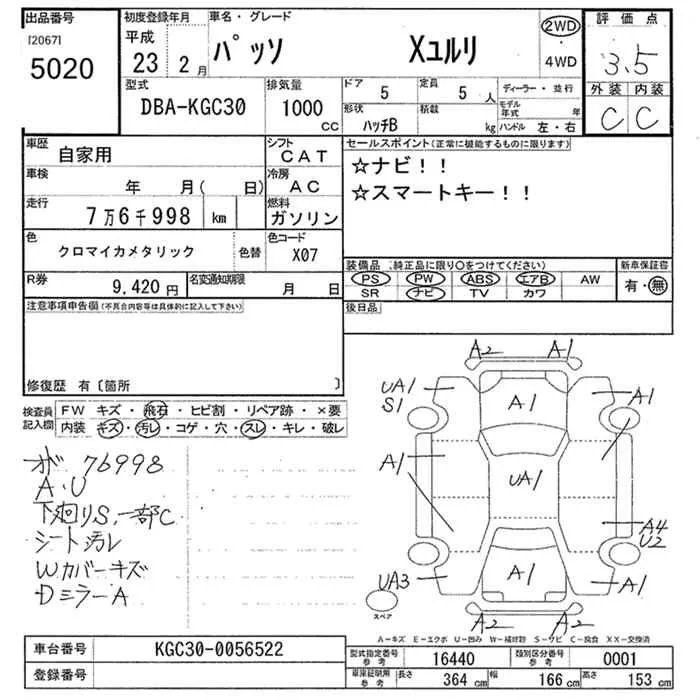 出品番号 初度登録年月 車名・グレード 評価点
[2067] 平成 パッソ Xユルリ 2WD・4WD 3.5
5020 23 2月
型式 排気量 ドア 5 定員 5人 ディーラー・並行 外装 内装
DBA-KGC30 1000cc 形状 ハッチB 積載 kg モデル年式 年 ハンドル 左・右 C C
車歴 自家用 シフト CAT セールスポイント(正常に機能するものに限ります)
車検 年 月( 日) 冷房 AC ☆ナビ!!
走行 7万6千998 km 燃料 ガソリン ☆スマートキー!!
色 クロマイカメタリック 色替 色コード X07
装備品(純正品に限り○をつけてください) 新車保証書
R券 9,420円 名変通知期限 月 日 PS PW ABS エアB AW 有・無
SR ナビ TV カワ
注意事項申告欄(不具合内容等は具体的に記入して下さい) 後日品
修復歴 有〔箇所 〕
検査員記入欄 FW キズ・飛石・ヒビ割・リペア跡・×要
内装 キズ・汚レ・コゲ・穴・スレ・キレ・破レ
A2 A1
UA1 S1 A1 A1
A1 UA1
A4 U2
UA3 A1 A1
A2 A2
スペア
76998
A・U
下廻りS、一部C
シート汚レ
Wカバーキズ
DミラーA
A−キズ E−エクボ U−凹み W−補修跡 S−サビ C−腐食 XX−交換済
車台番号 KGC30-0056522 型式指定番号 参考 16440 類別区分番号 参考 0001
登録番号 車庫証明用 参考 長さ 364 cm 幅 166 cm 高さ 153 cm